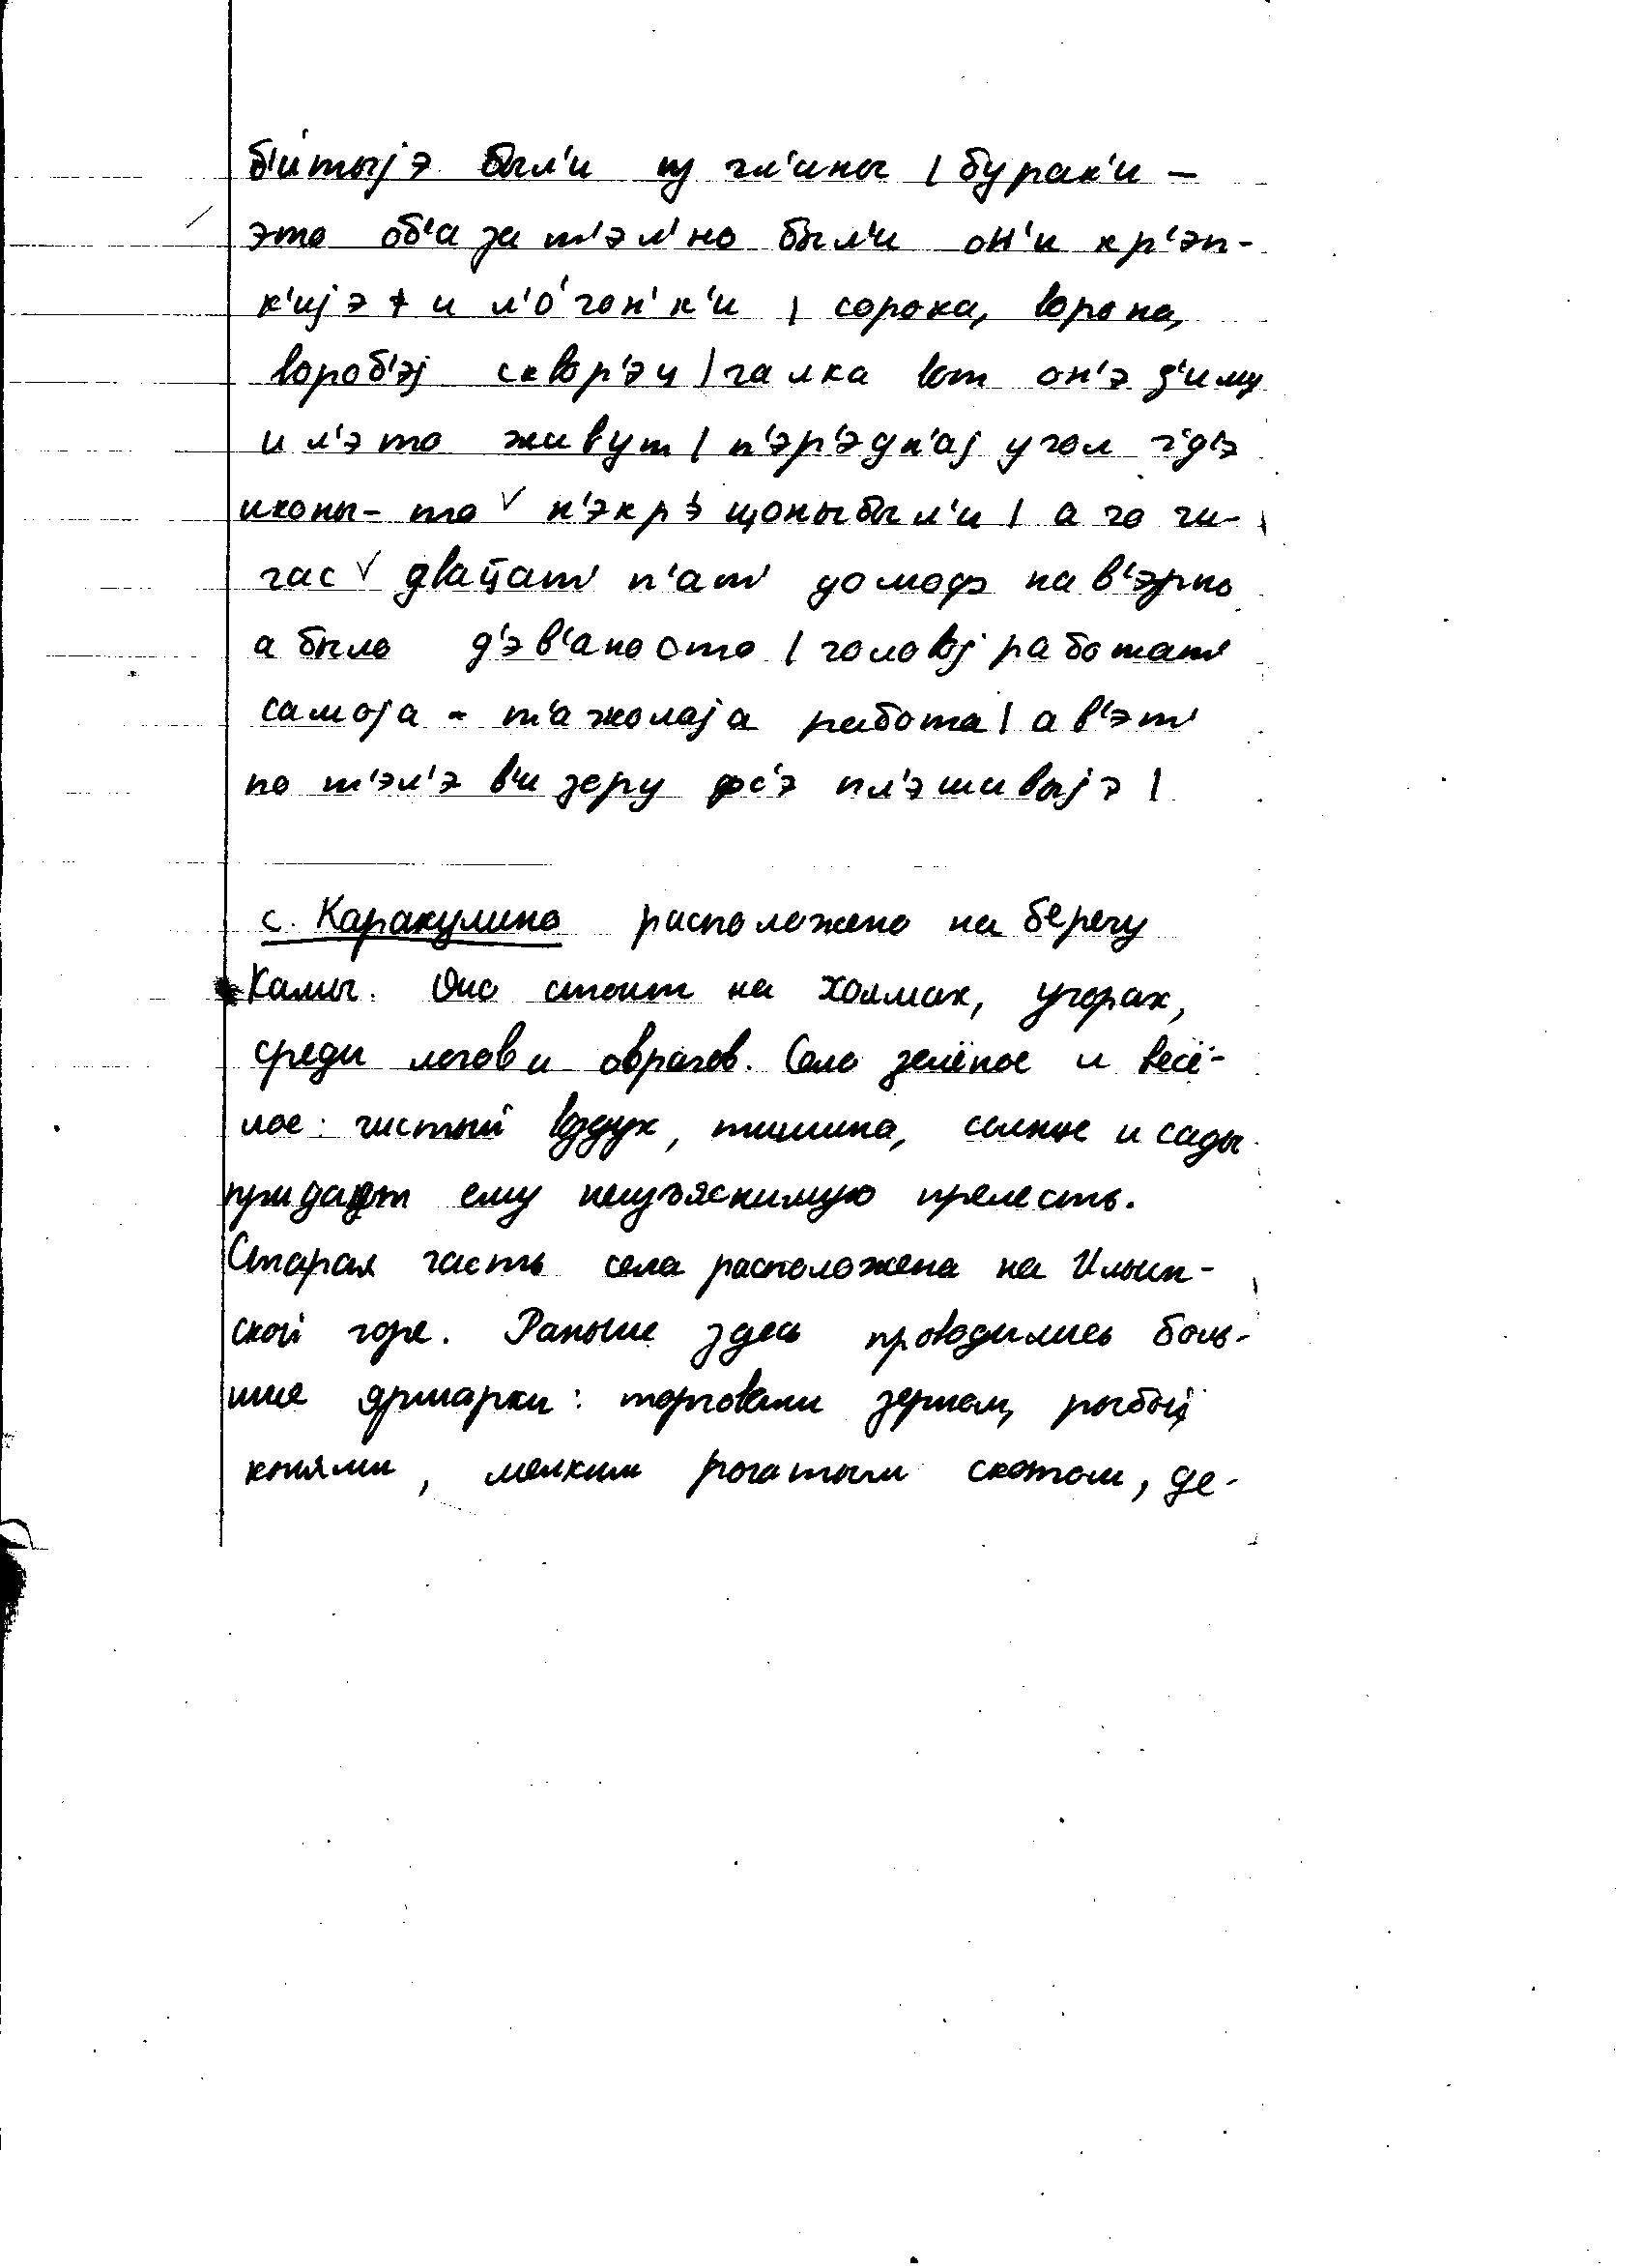 б'и́тыjэ был'и из гл'ины | бурак'и –
это об'аза т'эл'но был'и он'и кр'эп-
к'иjэ и л'о́гон'к'и | сорока, ворона,
вороб'эj сквор'эц | галка вот он'э з'иму
и л'это живут | п'эр'эдн'аj угол г'д'э
иконы-то ˅ н'экр'эщоны был'и | а го чи-
час ˅ двац̄ат' п'ат' домоф нав'эрно
а было д'эв'аносто | головоj работат'
самоjа - т'ажолаjа работа | а в'эт'
по т'эл'эв'изеру фс'э пл'эшивыjэ |
с. Каракулино расположено на берегу
Камы. Оно стоит на холмах, угорах,
среди логов и оврагов. Село зелёное и весё-
лое: чистый воздух, тишина, солнце и сады
придают ему неизъяснимую прелесть.
Старая часть села расположена на Ильин-
ской горе. Раньше здесь проводились боль-
шие ярмарки: торговали зерном, рыбой,
конями, мелким рогатым скотом, де-